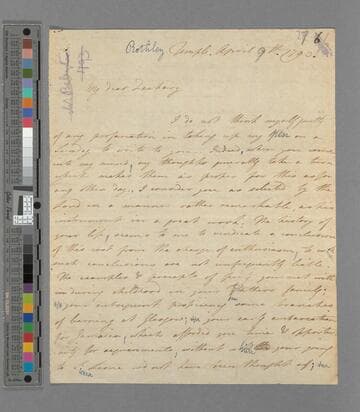 Rothley Temple. April 9th. 1793.
My dear Zachary
I do not think myself guilty
of any profanation in taking up my Pen on a
Sunday to write to you. Indeed, when you come
into my mind, my thoughts generally take a turn
which makes them as proper for this as for
any other day. I consider you as selected by the
Lord in a manner rather remarkable as an
instrument in a great work. The history of
your life, seems to me to vindicate a conclusion
of this sort from the charge of enthusiasm, to which
such conclusions are not unfrequently liable.
The examples & precepts of
childhood in your Fathers family;
your subsequent proficiency in some branches
of learning at Glasgow; your early embarkation
for Jamaica, which afforded you time & opportu
nity for improvements, without your going
to S. Leone would not have been thought of;